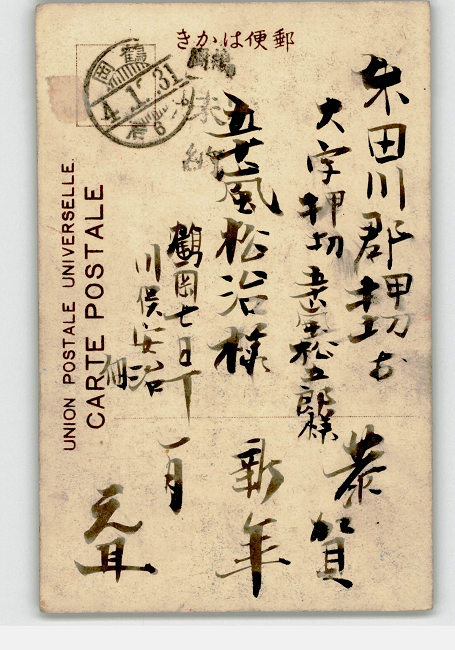 きかは便郵
鶴岡
4.1.31
未納
東田川郡押切村
大字押切 五十嵐松五郎様
五十嵐松治様
鶴岡七日町
川俣安治
恭賀
新年
一月
元旦
UNION POSTALE UNIVERSELLE.
CARTE POSTALE